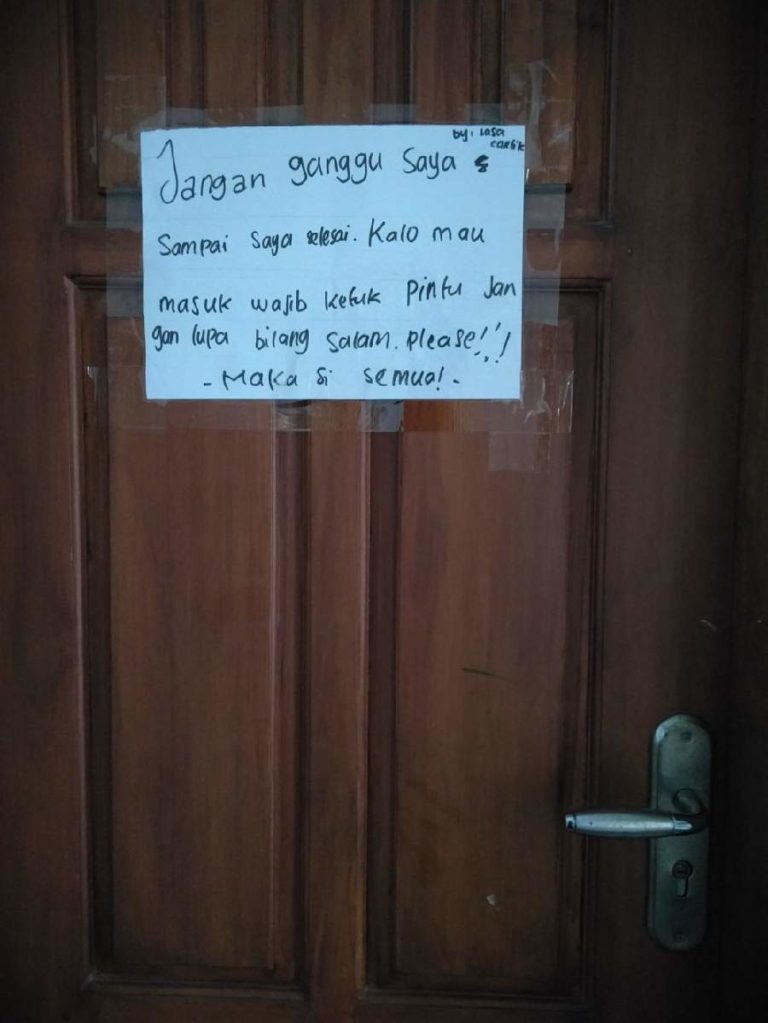 by: lasa
cantik
Jangan ganggu saya
Sampai saya selesai. Kalo mau
masuk wajib ketuk pintu Jan
gan lupa bilang salam. please!!!
- Maka si semua! -